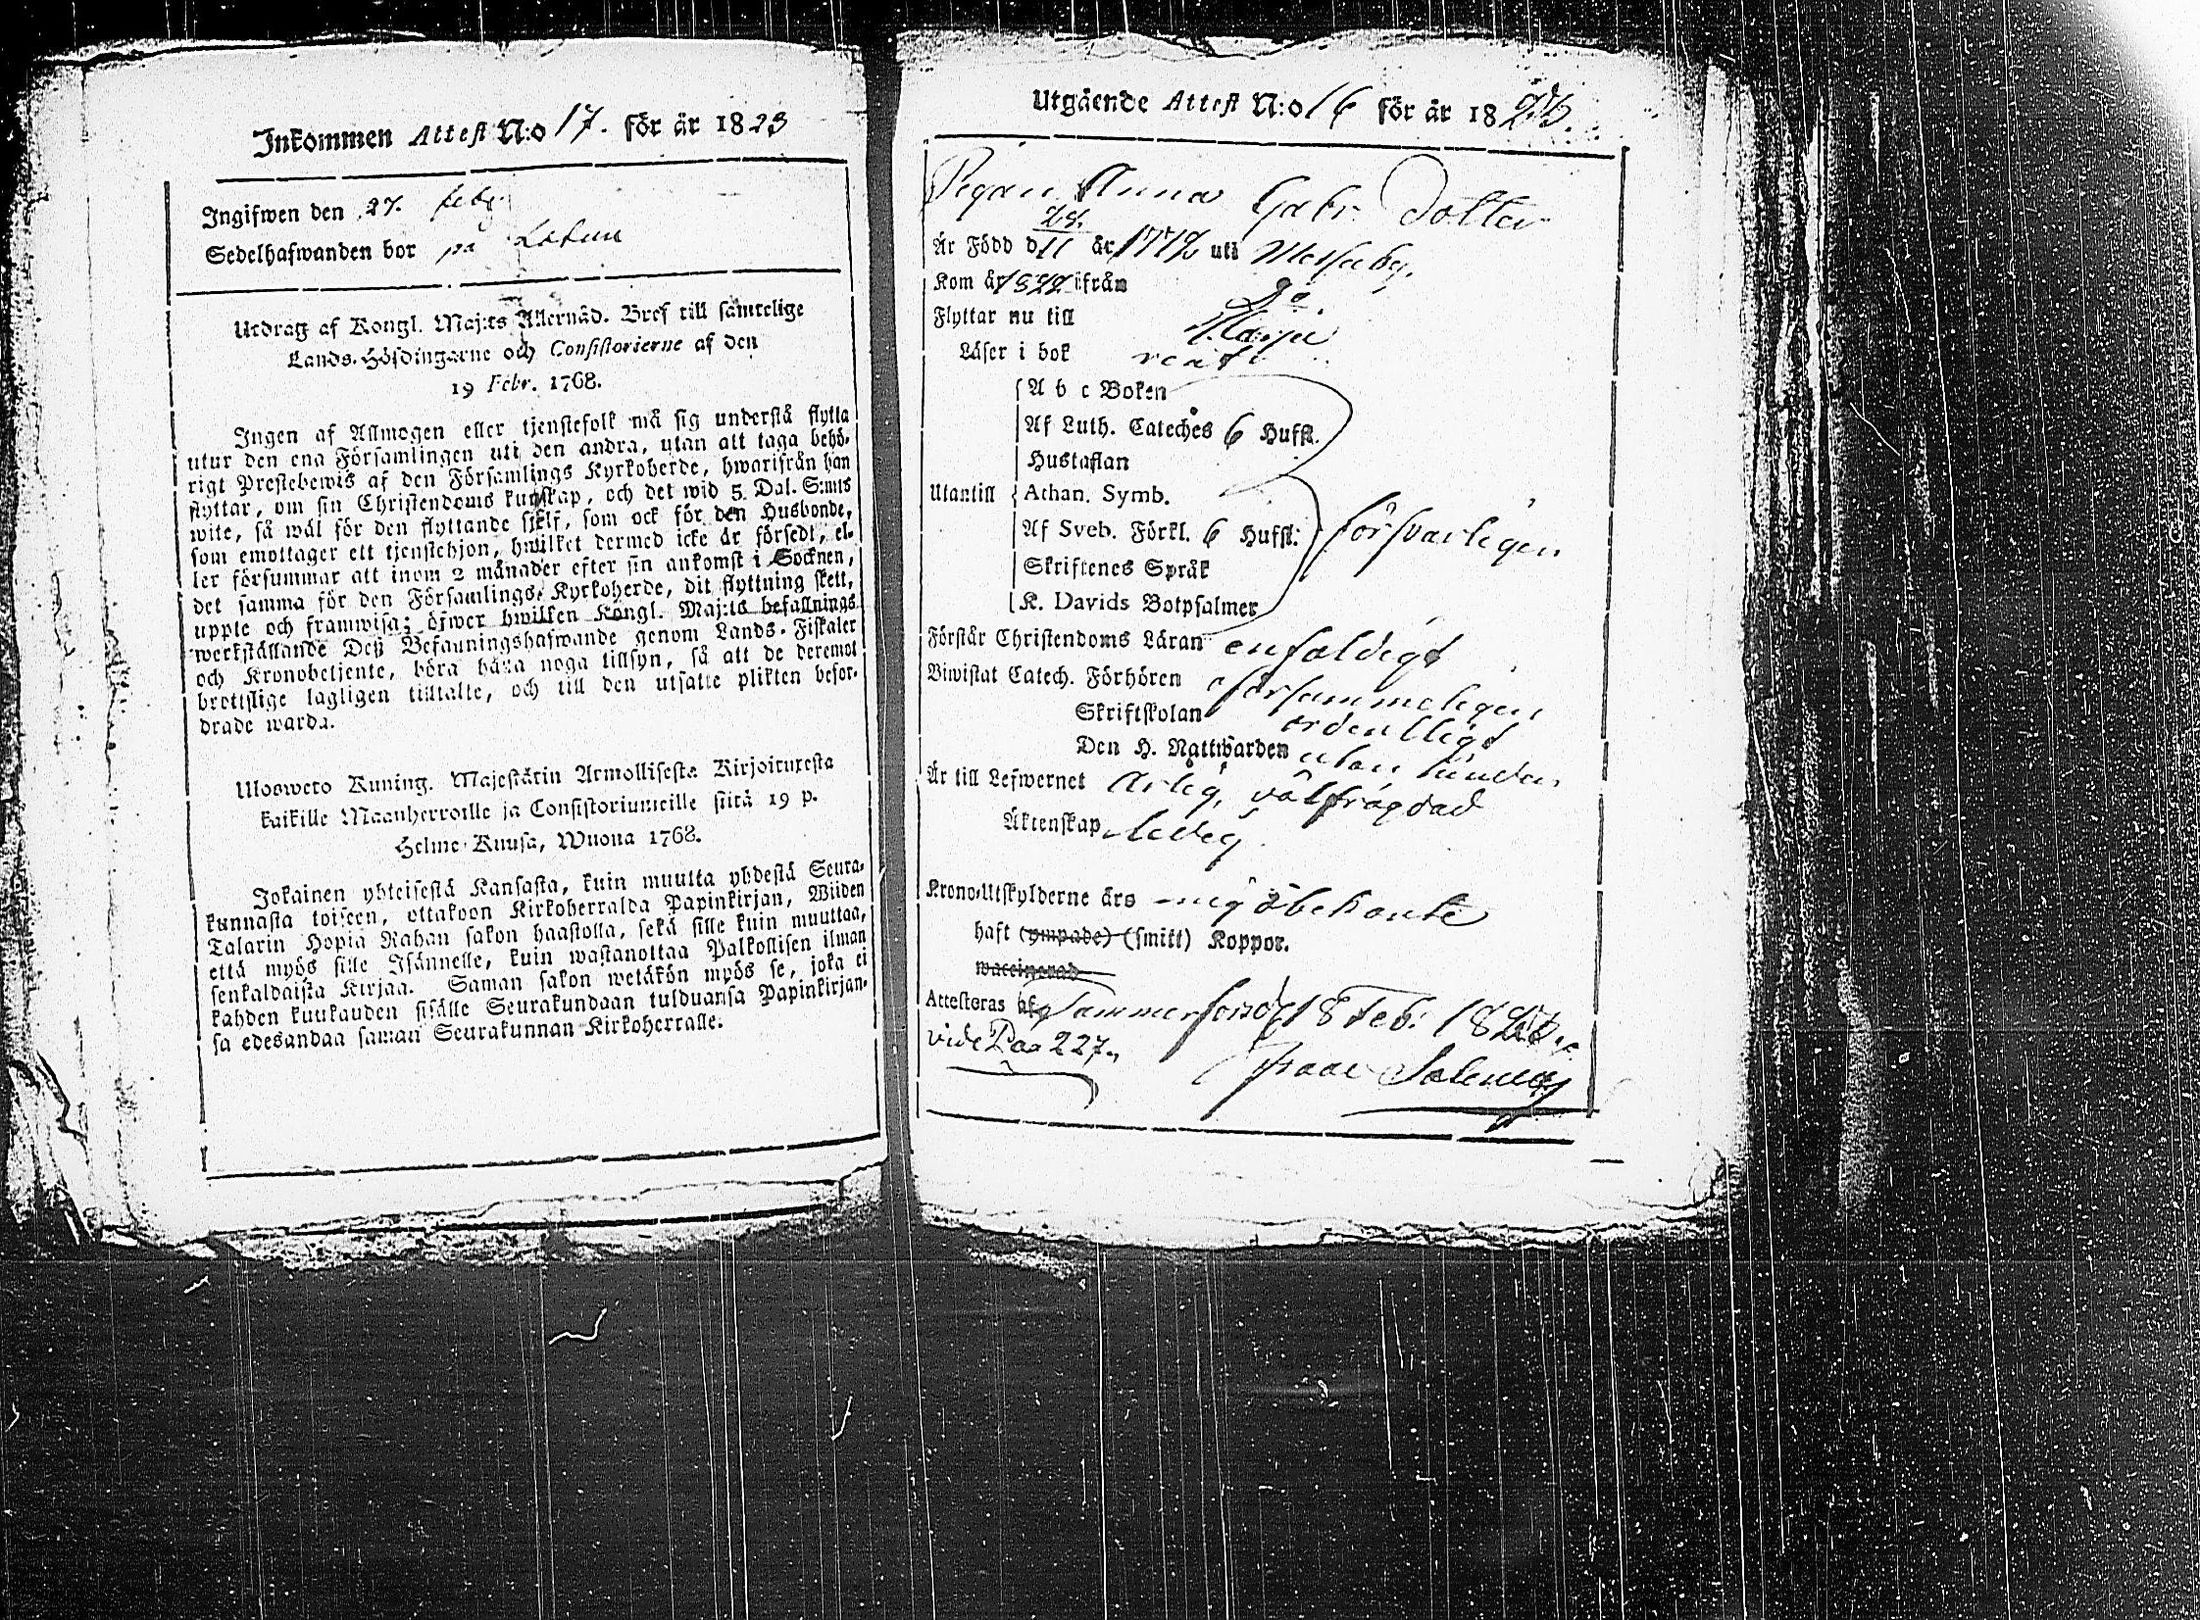 Inkommen Attest N:o 17. för år 1823
Ingifwen den 27. feb
Sedelhafwanden bor på
Utdrag af Kongl. Maj:ts Allernåd. Bref till samtelige
Lands-Höfdingarne och Consistorierne af den
19 Febr. 1768.
Ingen af Allmogen eller tjenstefolk må sig understå flytta
utur den ena Församlingen uti den andra, utan att taga behö-
rigt Prestebewis af den Församlings Kyrkoherde, hwarifrån han
flyttar, om sin Christendoms kunskap, och det wid 5. Dal. S:mts
wite, så wäl för den flyttande sjelf, som ock för den Husbonde,
som emottager ett tjenstehjon, hwilket dermed icke är försedt, el-
ler försummar att inom 2 månader efter sin ankomst i Socknen,
det samma för den Församlings Kyrkoherde, dit flyttning skett,
uppte och framwisa; öfwer hwilken Kongl. Maj:ts befallnings
werkställande Deß Befallningshafwande genom Lands-Fiskaler
och Kronobetjente, böra hålla noga tillsyn, så att de deremot
brottslige lagligen tilltalte, och till den utsatte plikten befor-
drade warda.
Ulosweto Kuning. Majestätin Armollisesta Kirjoituxesta
kaikille Maanherroille ja Consistoriumeille siitä 19 p.
Helme-Kuusa, Wuona 1768.
Jokainen yhteisestä Kansasta, kuin muutta yhdestä Seura-
kunnasta toiseen, ottakoon Kirkoherralda Papinkirjan, Wiiden
Talarin Hopia Rahan sakon haastolla, sekä sille kuin muuttaa,
että myös sille Isännelle, kuin wastanottaa Palkollisen ilman
senkaldaista Kirjaa. Saman sakon wetäkön myös se, joka ei
kahden kuukauden sisälle Seurakundaan tulduansa Papinkirjan-
sa edesandaa saman Seurakunnan Kirkoherralle.
Utgående Attest N:o 16 för år 1823.
Pigan Anna Gabr. Dotter
Är Född d 11 år 177 uti
Kom år 1822 ifrån
Flyttar nu till
Läser i bok rent
A b c Boken
Af Luth. Cateches 6 Hufst.
Hustaflan
Utantill Athan. Symb.
Af Sveb. Förkl. 6 Hufst: försvarligen
Skriftenes Språk
K. Davids Botpsalmer
Förstår Christendoms Läran enfaldigt
Biwistat Catech. Förhören försummeligen
Skriftskolan ordentligt
Den H. Nattwarden utan hinder
Är till Lefwernet ärlig, välfrägdad
Äktenskap ledig
Krono-Utskylderne äro mig obekante
haft (ympade) (smitt) Koppor.
vaccinerad
Attesteras af Sammarfors d 18 Feb: 1823.
vide Pag 227. Isaac